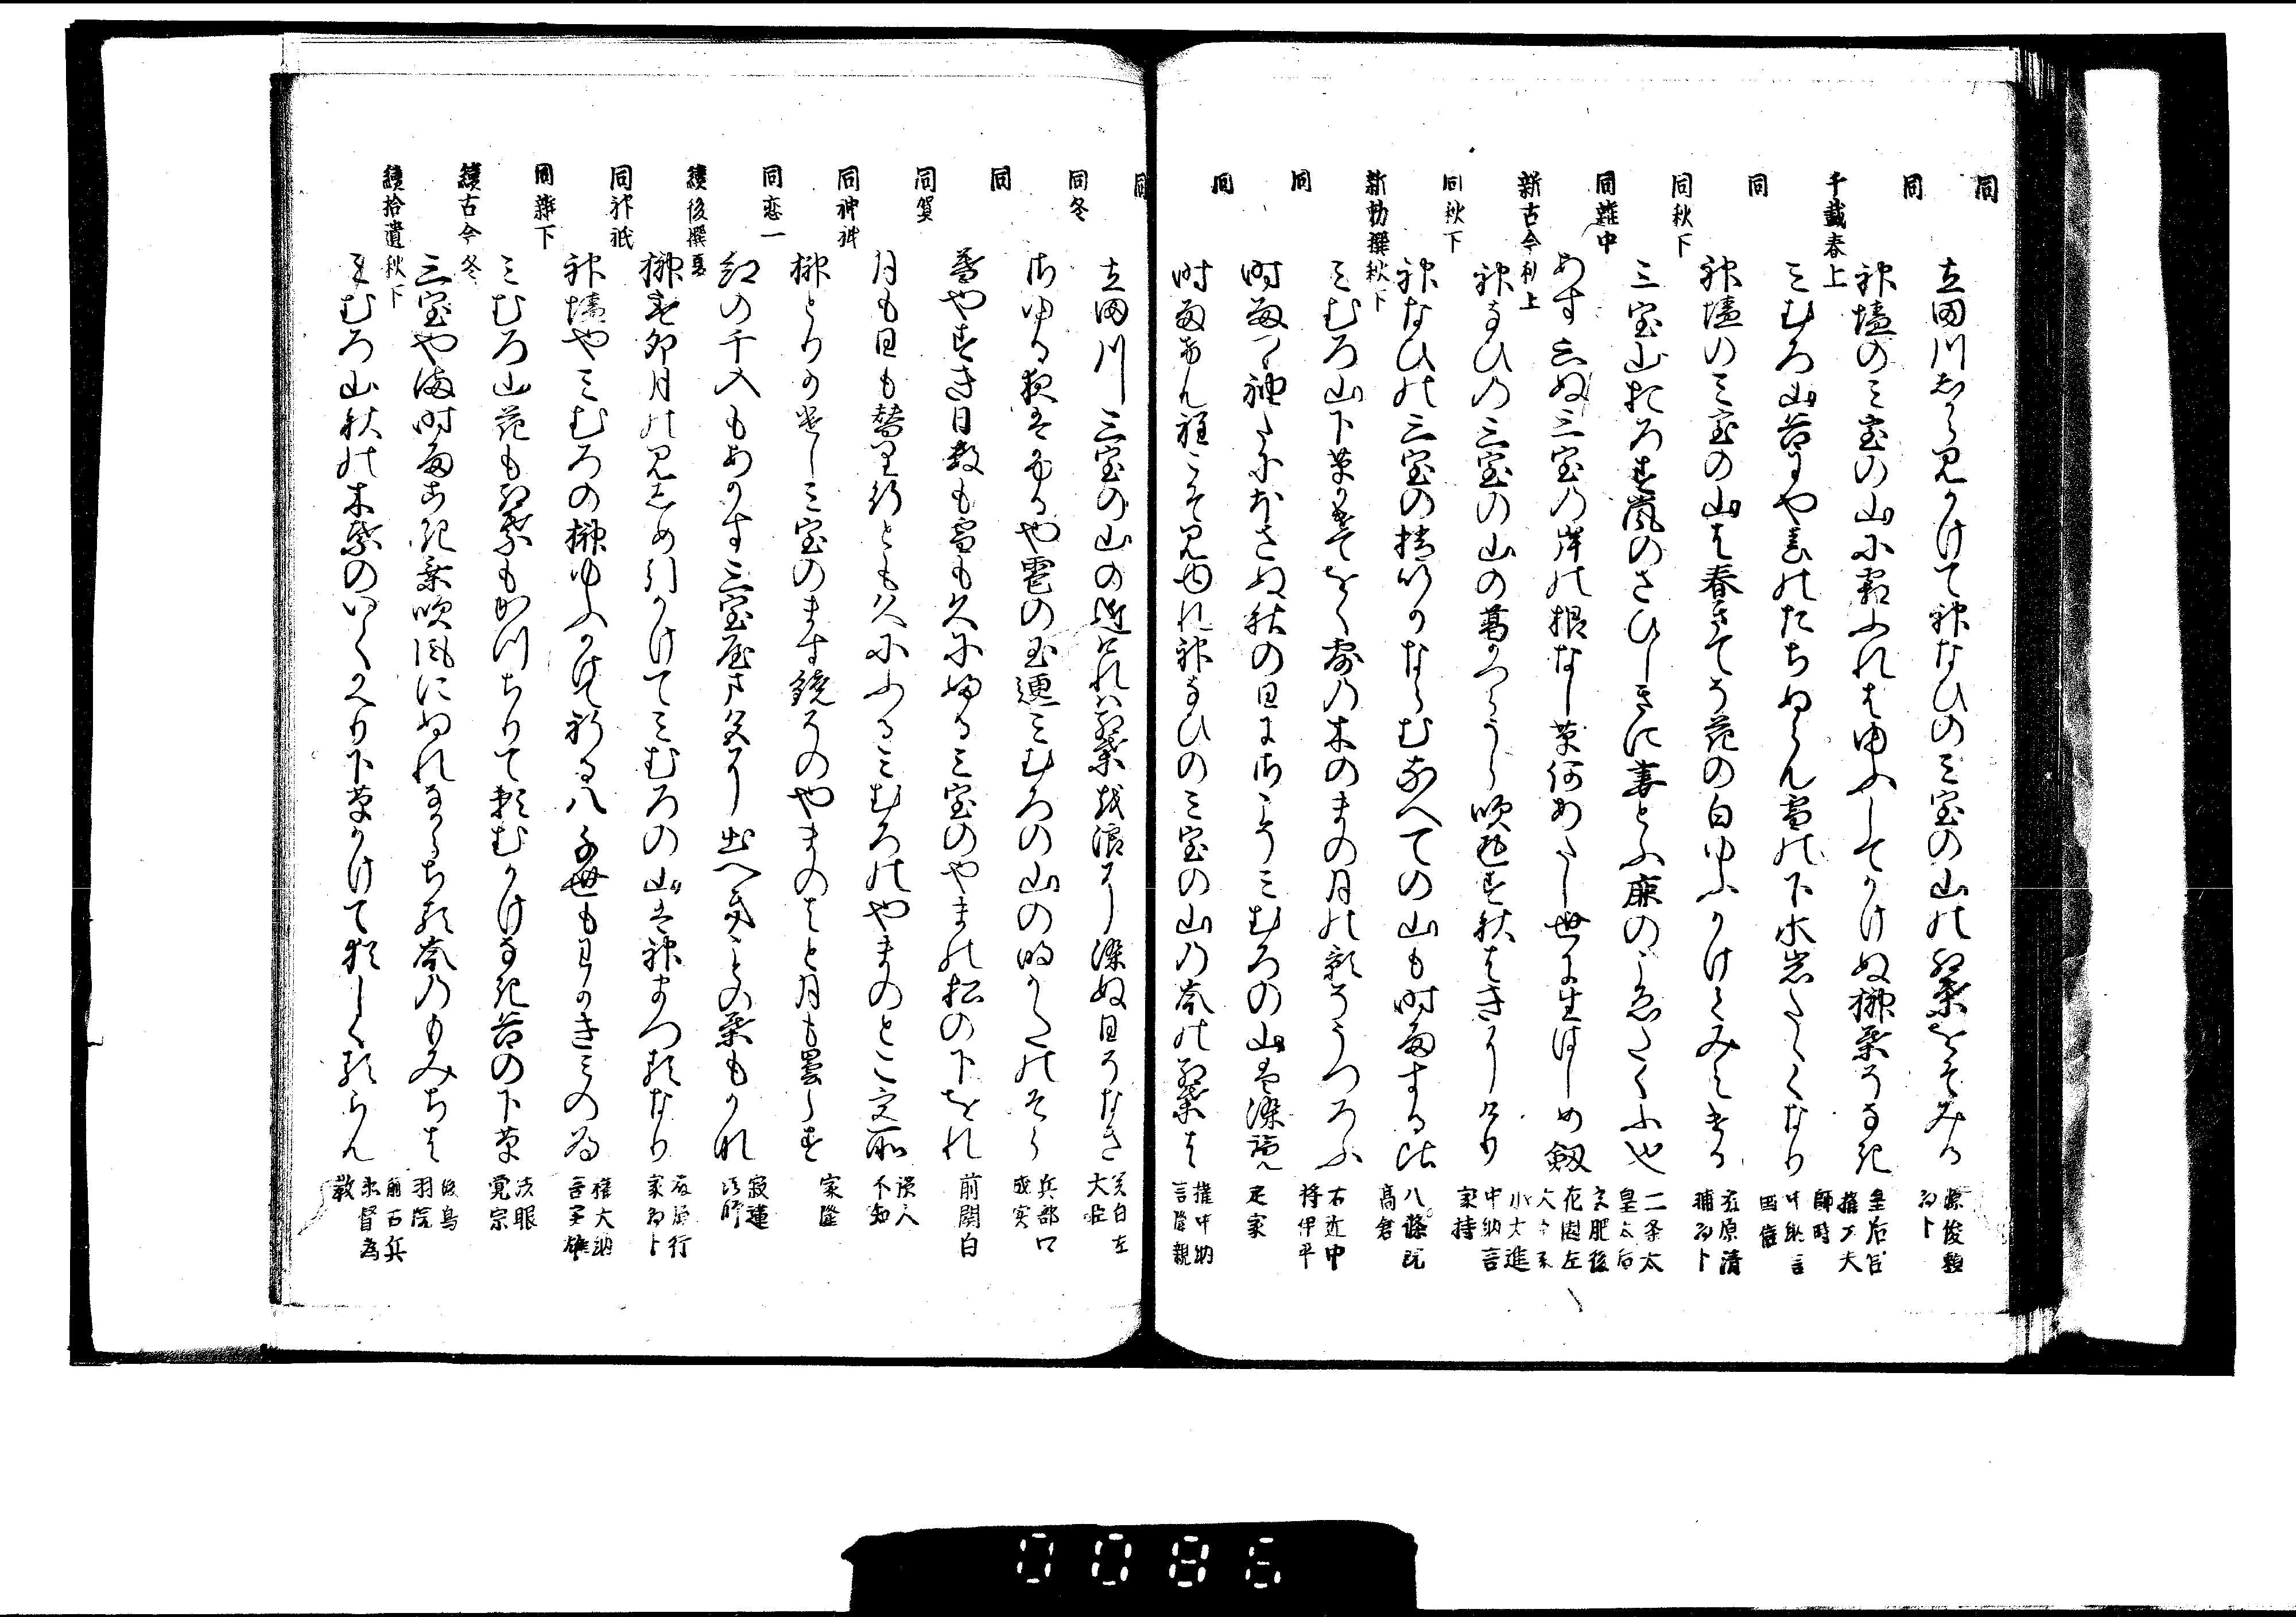 同
立田川しからみかけて神なひの三室の山の紅葉をそみる
源俊頼
同
神墻の三室の山に霜ふれはゆふしてかけぬ榊葉そなき
皇后宮
権大夫
師時
千載春上
みむろ山谷にや春のたちぬらん雪の下水岩たゝくなり
中納言
国信
同
神墻の三室の山は春きてそ花の白ゆふかけてみえける
藤原清
輔
同秋下
三室山おろす嵐のさひしきに妻とふ鹿のこゑたくふ也
二条太
皇太后
宮肥後
同雑中
あすしらぬ三室の岸の根なし草何あたし世に生はしめ剱
花園左
小大進
新古今秋上
神なひの三室の山の葛かつらうら吹返す秋はきにけり
中納言
家持
同秋下
神なひの三室の梢いかならむなへての山も時雨する比
八条院
高倉
新勅撰秋下
みむろ山下草かけてをく露の木のまの月の影そうつろふ
右近中
将伊平
同
時雨つゝ袖たにほさぬ秋の日にさこそみむろの山は染覧
定家
同
時雨けん程こそ見ゆれ神なひの三室の山の峯の紅葉は
権中納
言隆親
同
立田川三室の山の近けれは紅葉を浪にそめぬ日そなき
関白左
大臣
同冬
さゆる夜はふるや霰の玉くしけみむろの山の明かたのそら
兵部口
成実
同
暮やすき日数も雪も久にふる三室のやまの松の下をれ
前関白
同賀
月も日も替里行とも久にふるみむろのやまのとこ宮所
読人
不知
同神祇
榊とりかけし三室のます鏡そのやまのはと月も曇らす
家隆
同恋一
紅の千入もあかす三室山色に出へきことの葉もかな
寂蓮
法師
続後撰夏
榊とる卯月の見しめ引かけてみむろの山は神まつるなり
藤原行
家
同神祇
神墻やみむろの榊ゆふかけて祈る八千世もわかきみの為
権大納
言
同雑下
みむろ山花も紅葉もかつちりて頼むかけなき谷の下草
法眼
覚宗
続古今冬
三室やま時雨こき葉吹風にぬれなからちる峯のもみちは
後鳥
羽院
続拾遺秋下
みむろ山秋の木葉のいくかへり下草かけて猶しくるらん
前右兵
衛督為
教